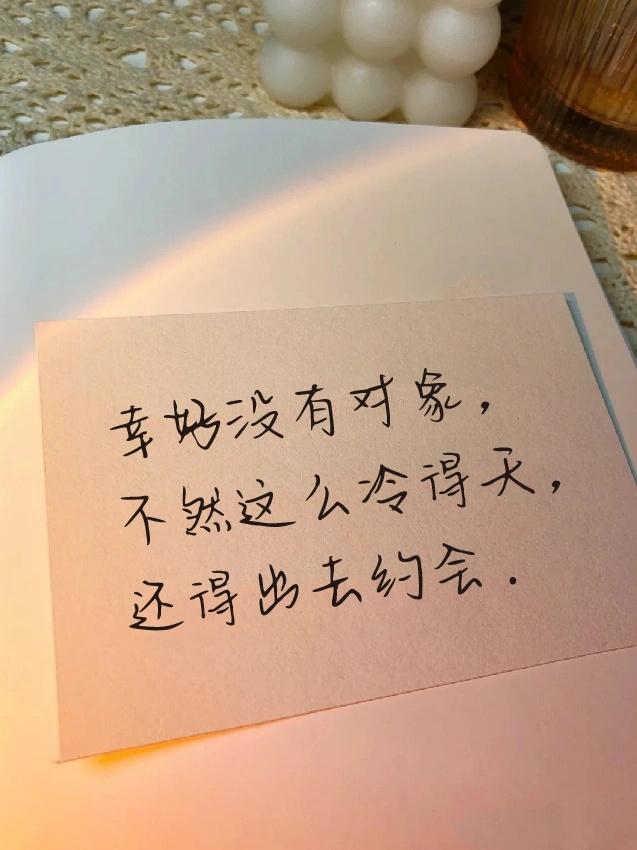 幸好没有对象，
不然这么冷得天，
还得出去约会.